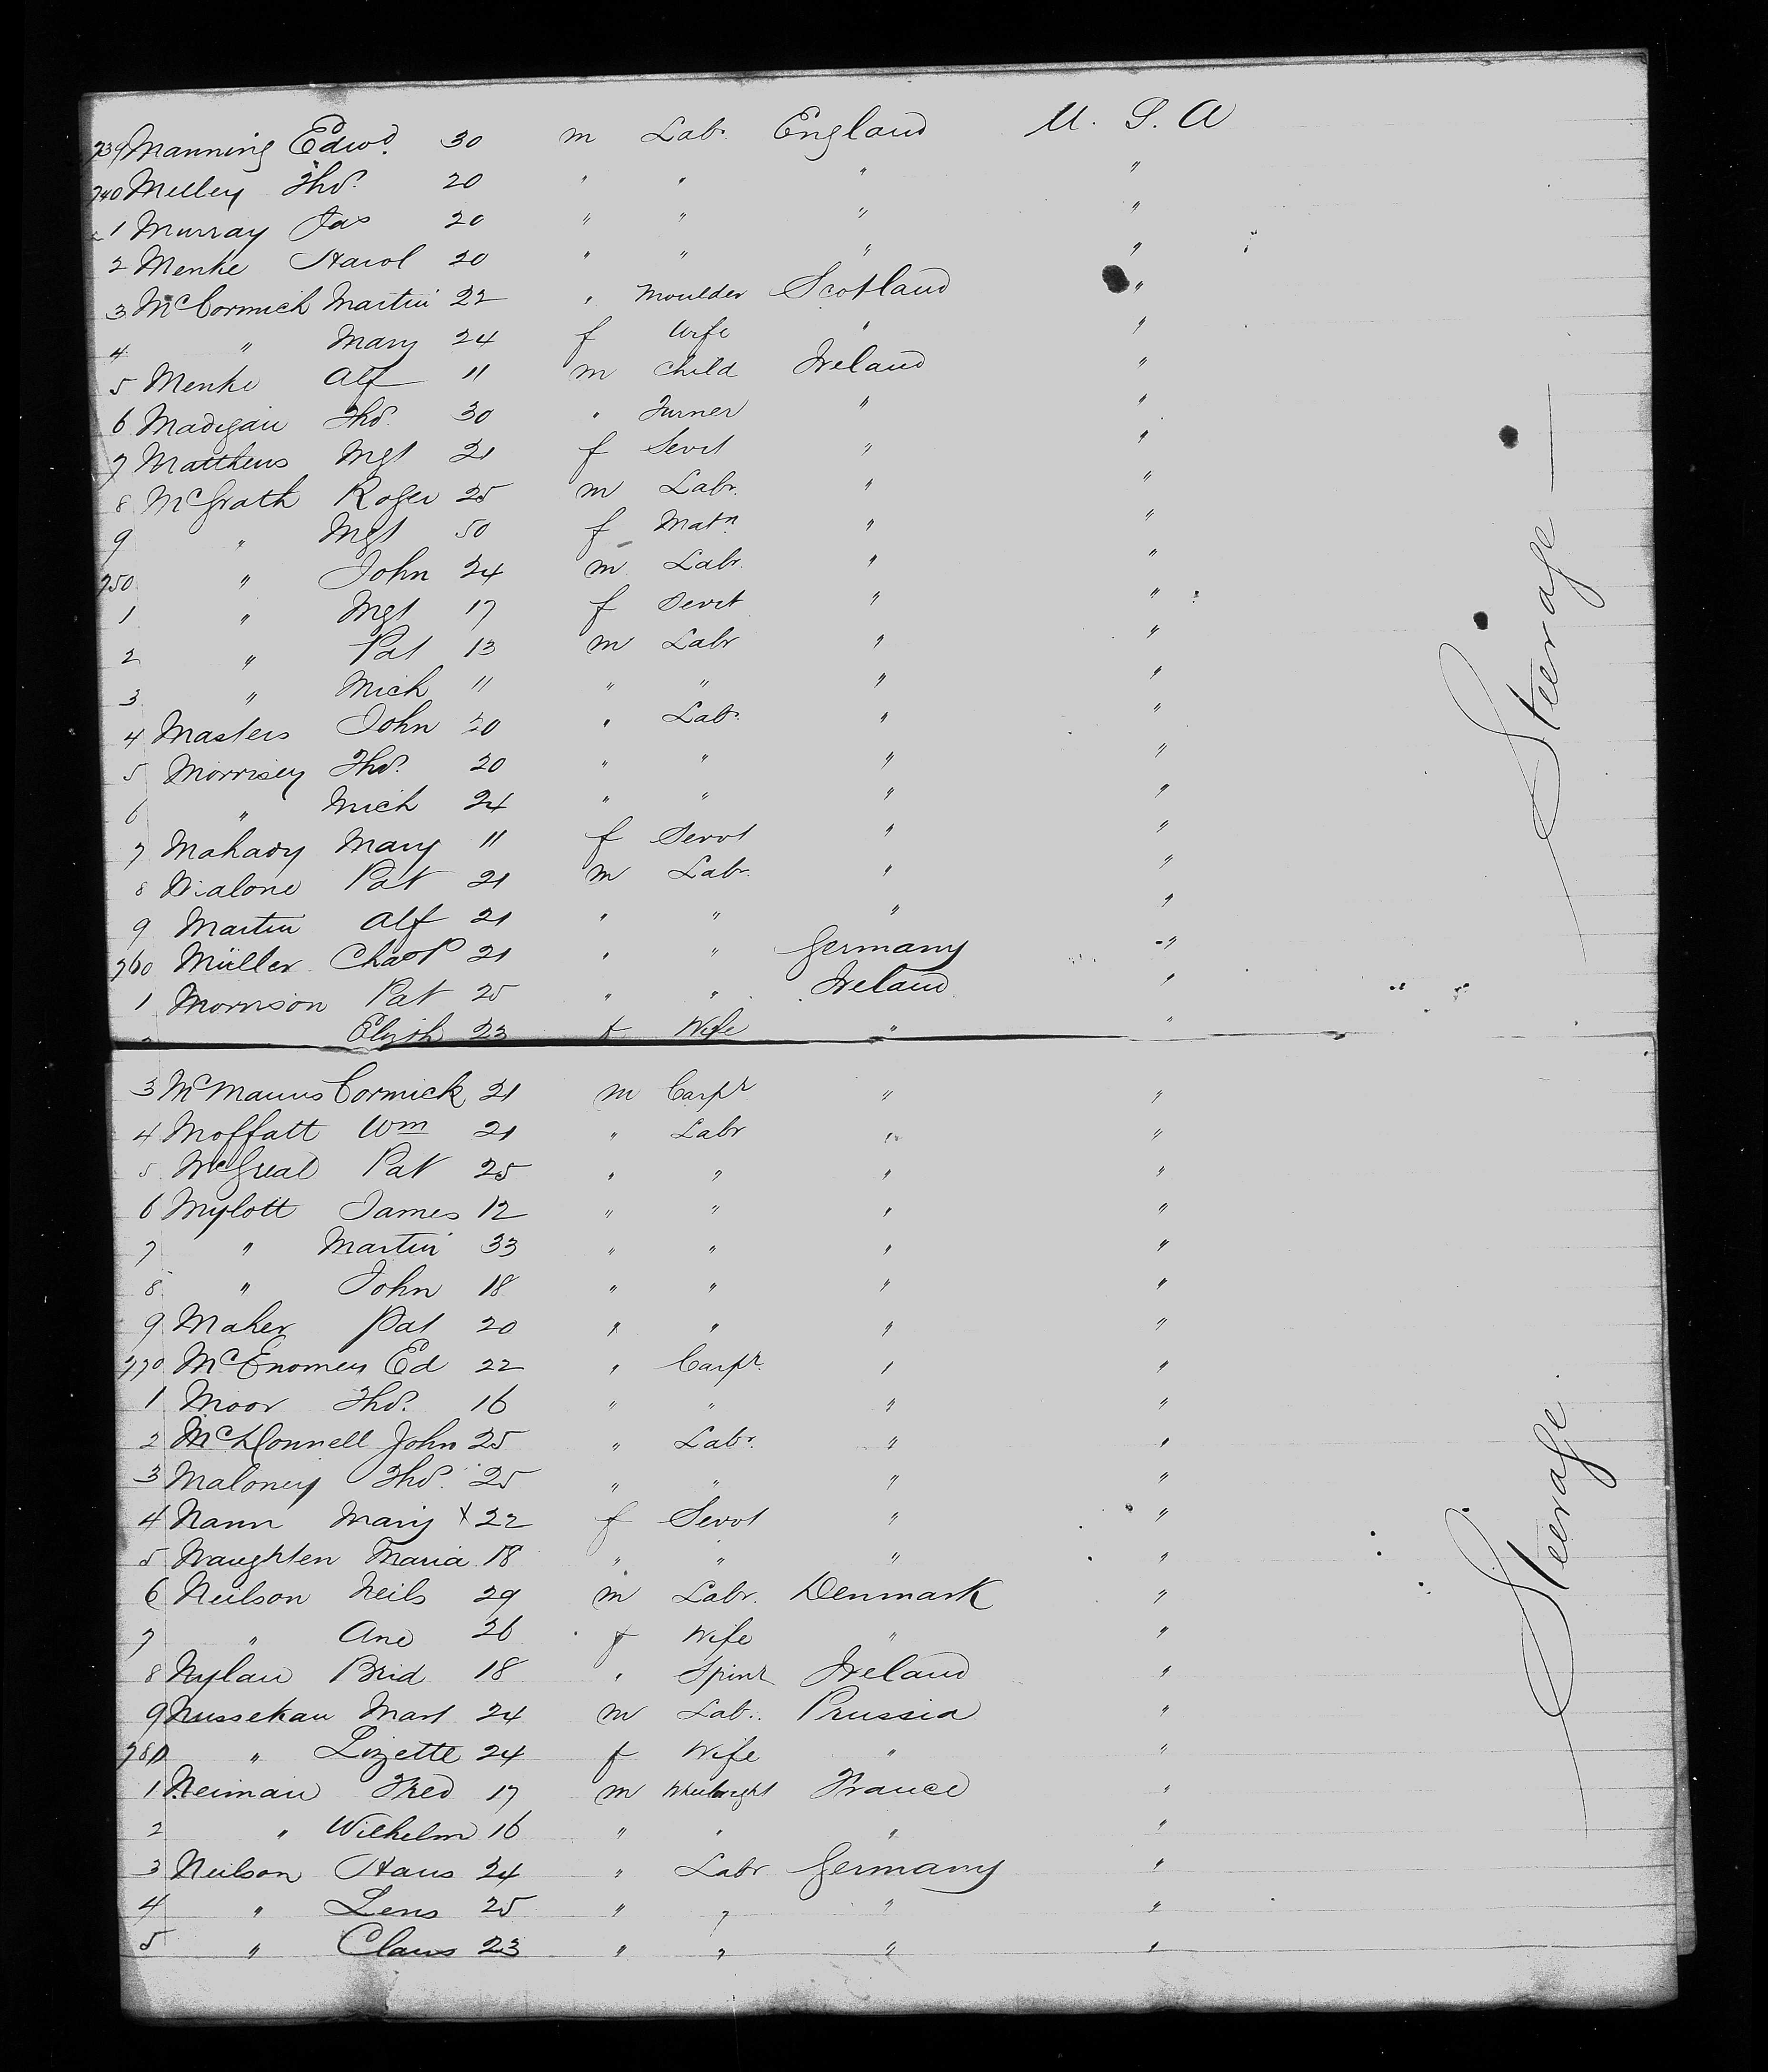 739 Manning Edwd. 30 m Labr. England U. S. A
740 Melley Thos. 20 " " " "
1 Murray Jas 20 " " " "
2 Menke Harol 20 " " " "
3 McCormick Martin 22 " Moulder Scotland "
4 " Mary 24 f Wife " "
5 Menke Alf 11 m Child Ireland "
6 Madigan Thos. 30 " Turner " "
7 Matthews Mgt 21 f Servt " "
8 McGrath Roger 25 m Labr. " "
9 " Mgt 50 f Matn " "
750 " John 24 m Labr. " "
1 " Mgt 17 f Servt " "
2 " Pat 13 m Labr " "
3 " Mich 11 " " " "
4 Masters John 20 " Labr. " "
5 Morrisey Thos. 20 " " " "
6 " Mich 24 " " " "
7 Mahady Mary 11 f Servt " "
8 Malone Pat 21 m Labr. " "
9 Martin Alf 21 " " " "
760 Müller Chas 21 " " Germany "
1 Morrison Pat 25 " " Ireland "
Elizth 23 f Wife " "
Steerage
3 McManus Cormick 21 m Carpr " "
4 Moffatt Wm 21 " Labr " "
5 McGreal Pat 25 " " " "
6 Mylott James 12 " " " "
7 " Martin 33 " " " "
8 " John 18 " " " "
9 Maher Pat 20 " " " "
770 McEnomey Ed 22 " Carpr. " "
1 Moor Thos. 16 " " " "
2 McDonnell John 25 " Labr. " "
3 Maloney Thos. 25 " " " "
4 Nann Mary x 22 f Servt " "
5 Naughten Maria 18 " " " "
6 Neilson Neils 29 m Labr. Denmark "
7 " Ane 26 f Wife " "
8 Nylan Brid 18 " Spinr Ireland "
9 Nussekau Mart 24 m Lab.. Prussia "
780 " Lizette 24 f Wife " "
1 Neiman Fred 17 m Wheelwright France "
2 " Wilhelm 16 " " " "
3 Neilson Hans 24 " Labr Germany "
4 " Lens 25 " " " "
5 " Claus 23 " " " "
Steerage